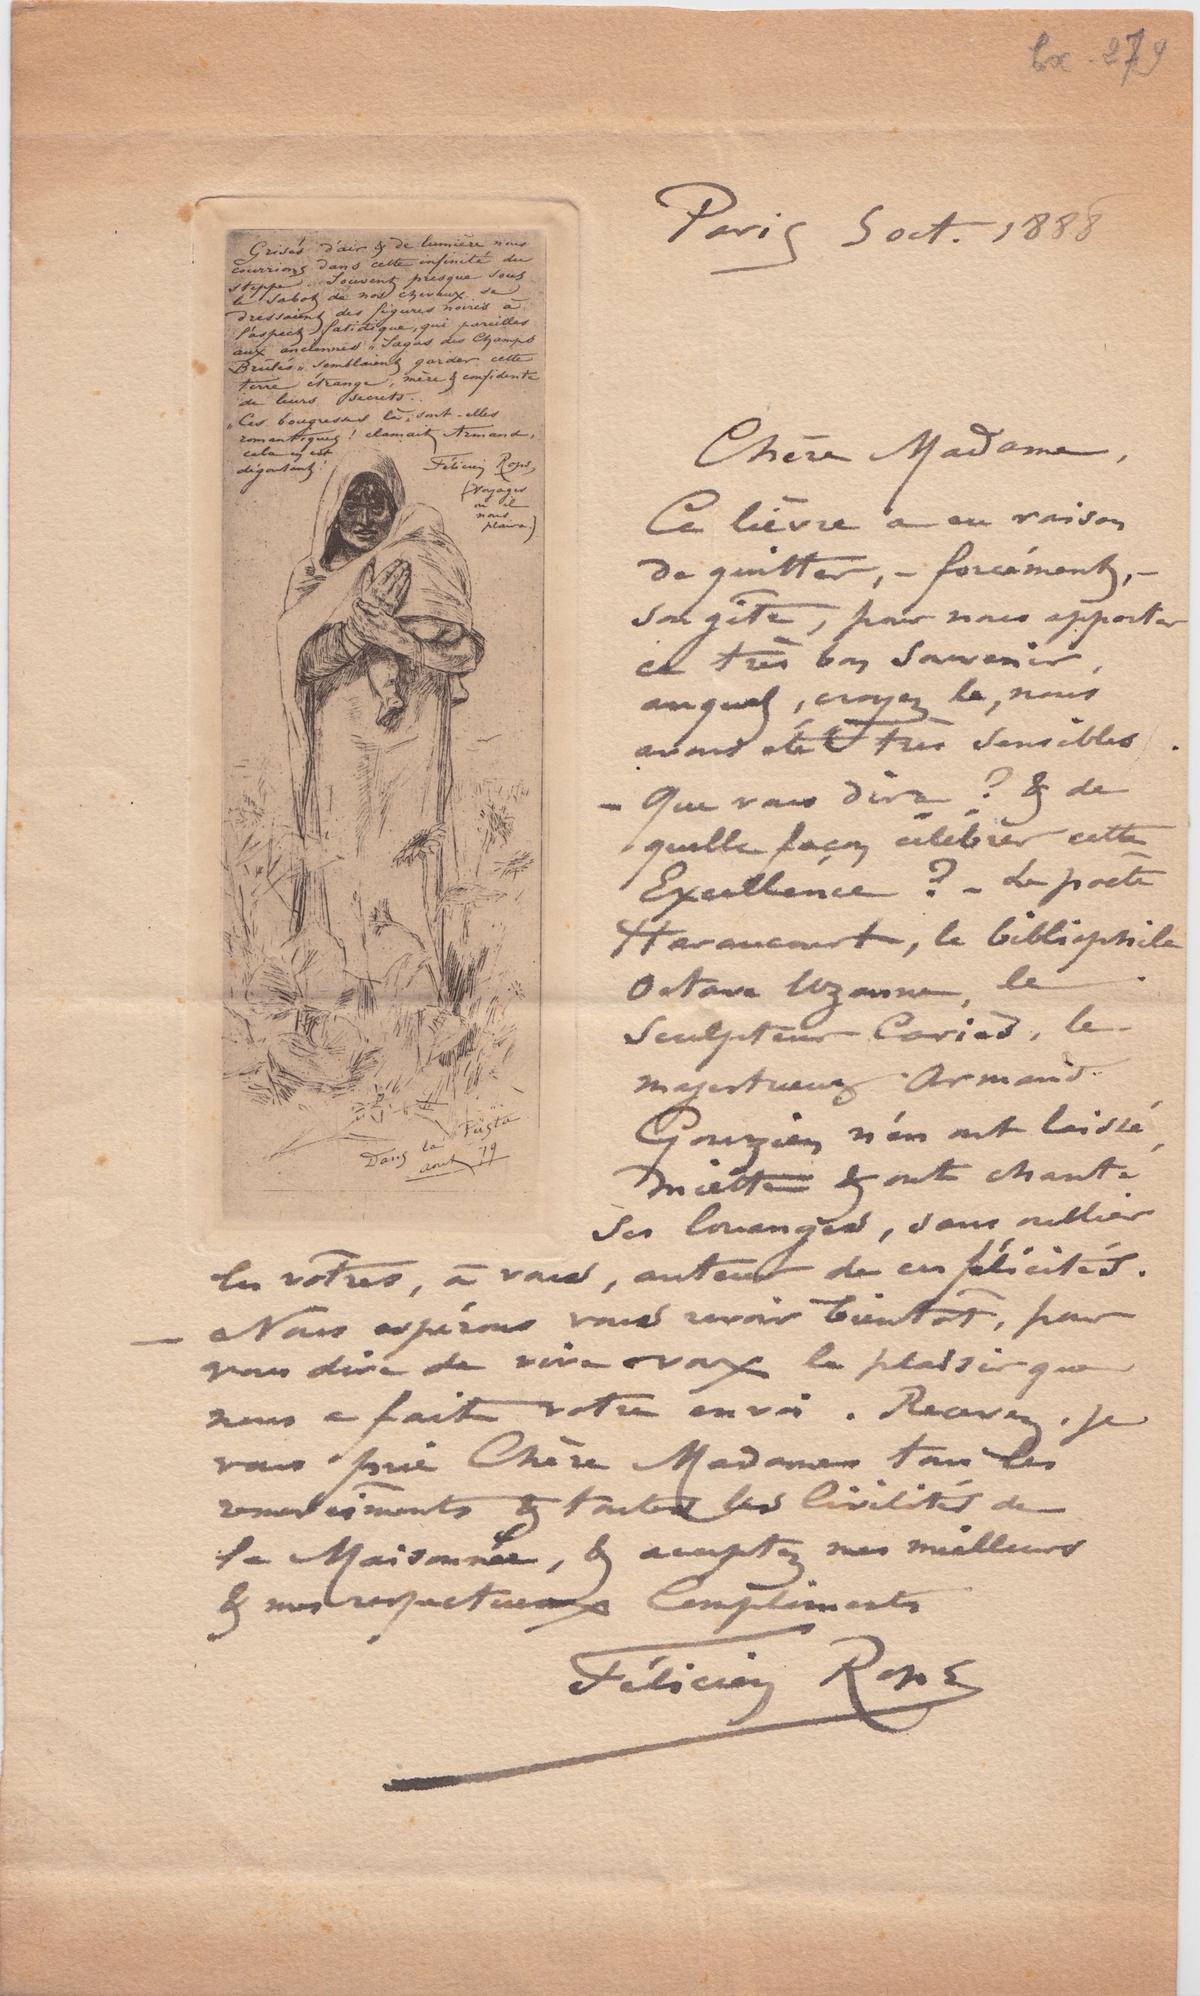 279
Grisés d'air & de lumière nous
courrions dans cette infinité du
steppe. Souvent presque sous
le sabot de nos chevaux se
dressaient des figures noires à
l'aspect fatidique, qui pareilles
aux anciennes „Sagas des Champs
Brûlés„ semblaient garder cette
terre étrange, mère & confidente
de leurs secrets..
„Ces bougresses là, sont-elles
romantiques! clamait Armand,
cela en est
dégoutant!
Félicien Rops,
(Voyages
où il
nous
plaira.)
Dans la Püszta
aout 79
Paris 5 oct. 1888
Chère Madame,
Ce lièvre a eu raison
de quitter, - forcément, -
son gîte, pour nous apporter
ce très bon souvenir,
auquel, croyez le, nous
avons été très sensibles.
- Que vous dire ? & de
quelle façon célébrer cette
Excellence ? - Le poète
Haraucourt, le bibliophile
Octave Uzanne, le
sculpteur Cariès, le
majestueux Armand
Gouzien n'en ont laissé
miette & ont chanté
ses louanges, sans oublier
les vôtres, à vous, auteur de ces félicités.
- Nous espérons vous revoir bientôt, pour
vous dire de vive voix le plaisir que
nous a fait votre envoi. Recevez, je
vous prie Chère Madame tous les
remerciments & toutes les Civilités de
la Maisonnée, & acceptez mes meilleurs
& mes respectueux Compliments
Félicien Rops